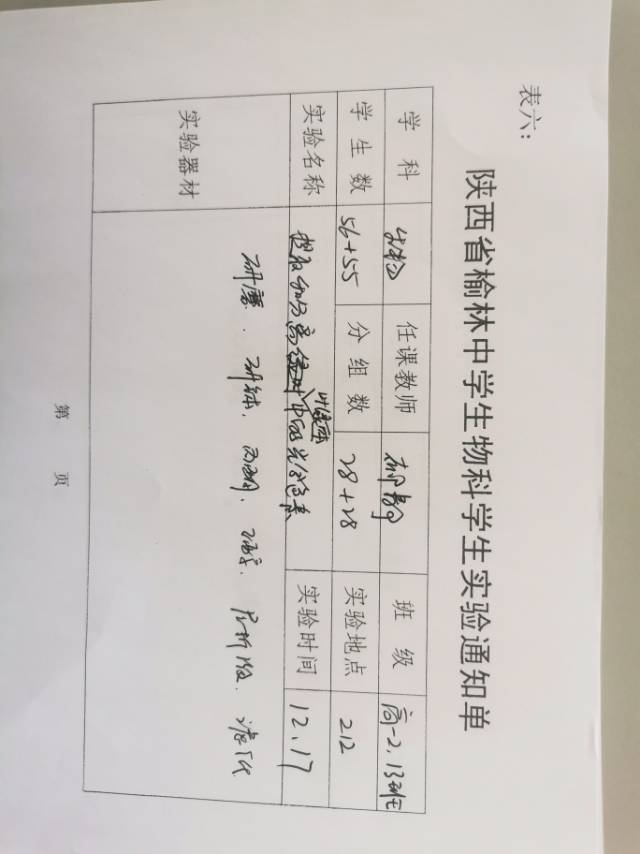 表六：
陕西省榆林中学生物科学生实验通知单
学 科 生物 任课教师 班 级 高一2、13班
学 生 数 56+55 分 组 数 28+28 实验地点 212
实验名称 提取和分离叶绿体中的光合色素 实验时间 12.17
实验器材 研磨、研钵、丙酮、层析液、滤纸
第 页